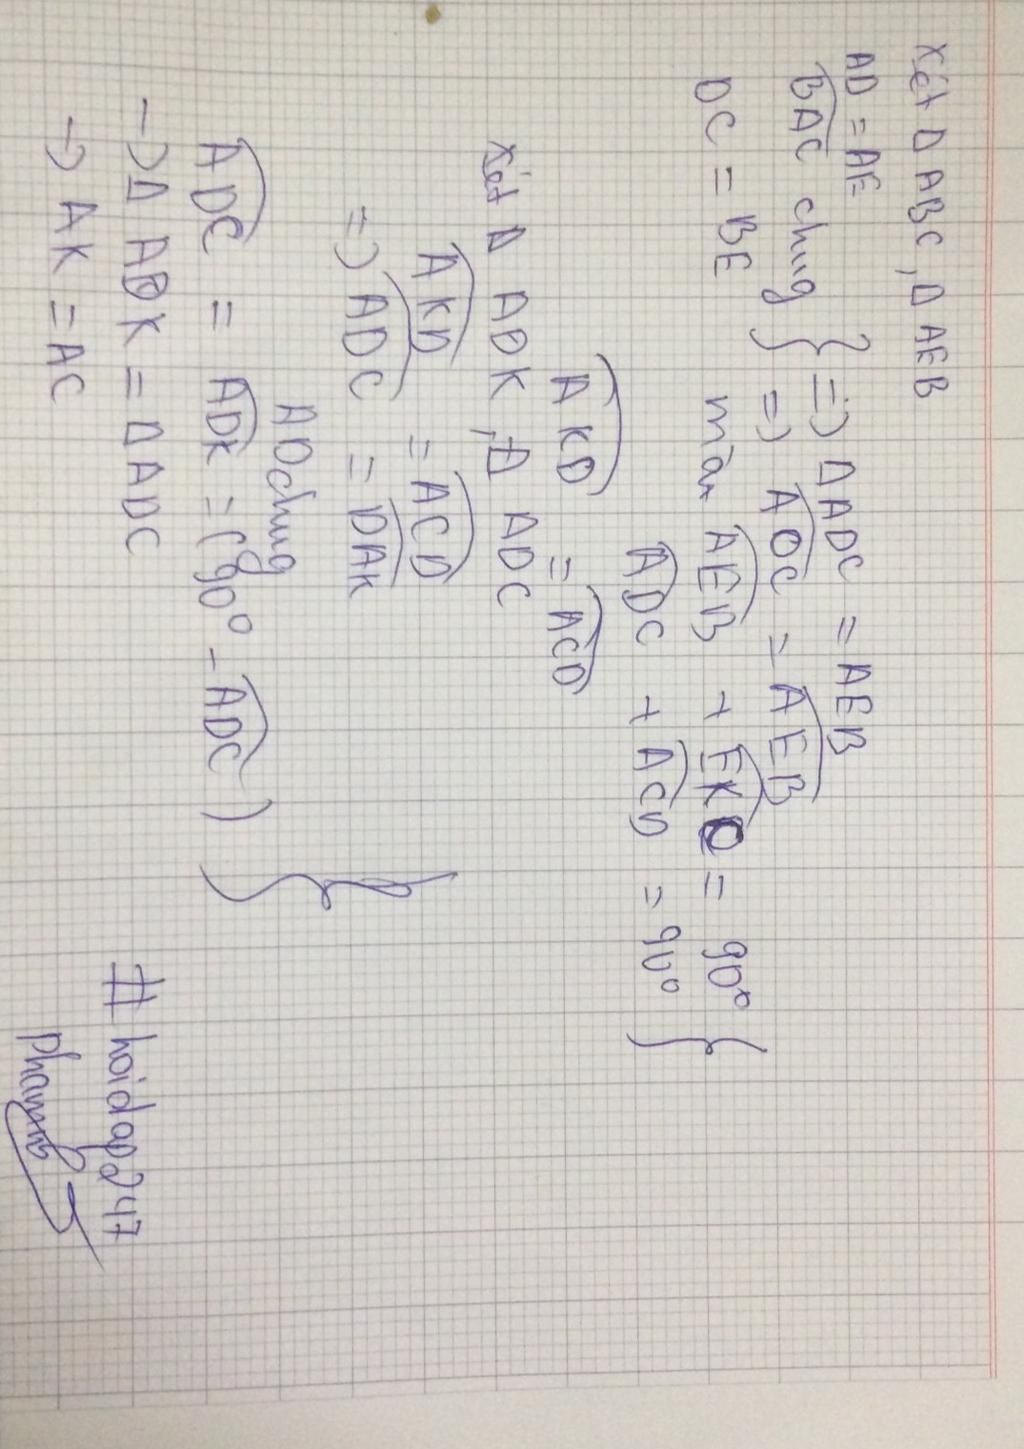 Xét Δ ABC, Δ AEB
AD = AE
BAC chug } => Δ ADC = AEB
DC = BE => ADC = AEB
màn AEB + EKC = 90°
ADC + ACD = 90° }
AKD = ACD
Xét Δ ADK, Δ ADC
AKD = ACD
=> ADC = DAK
AD chug
ADC = ADK = (90° - ADC) }
-> Δ ADK = Δ ADC
-> AK = AC
# hoidap247